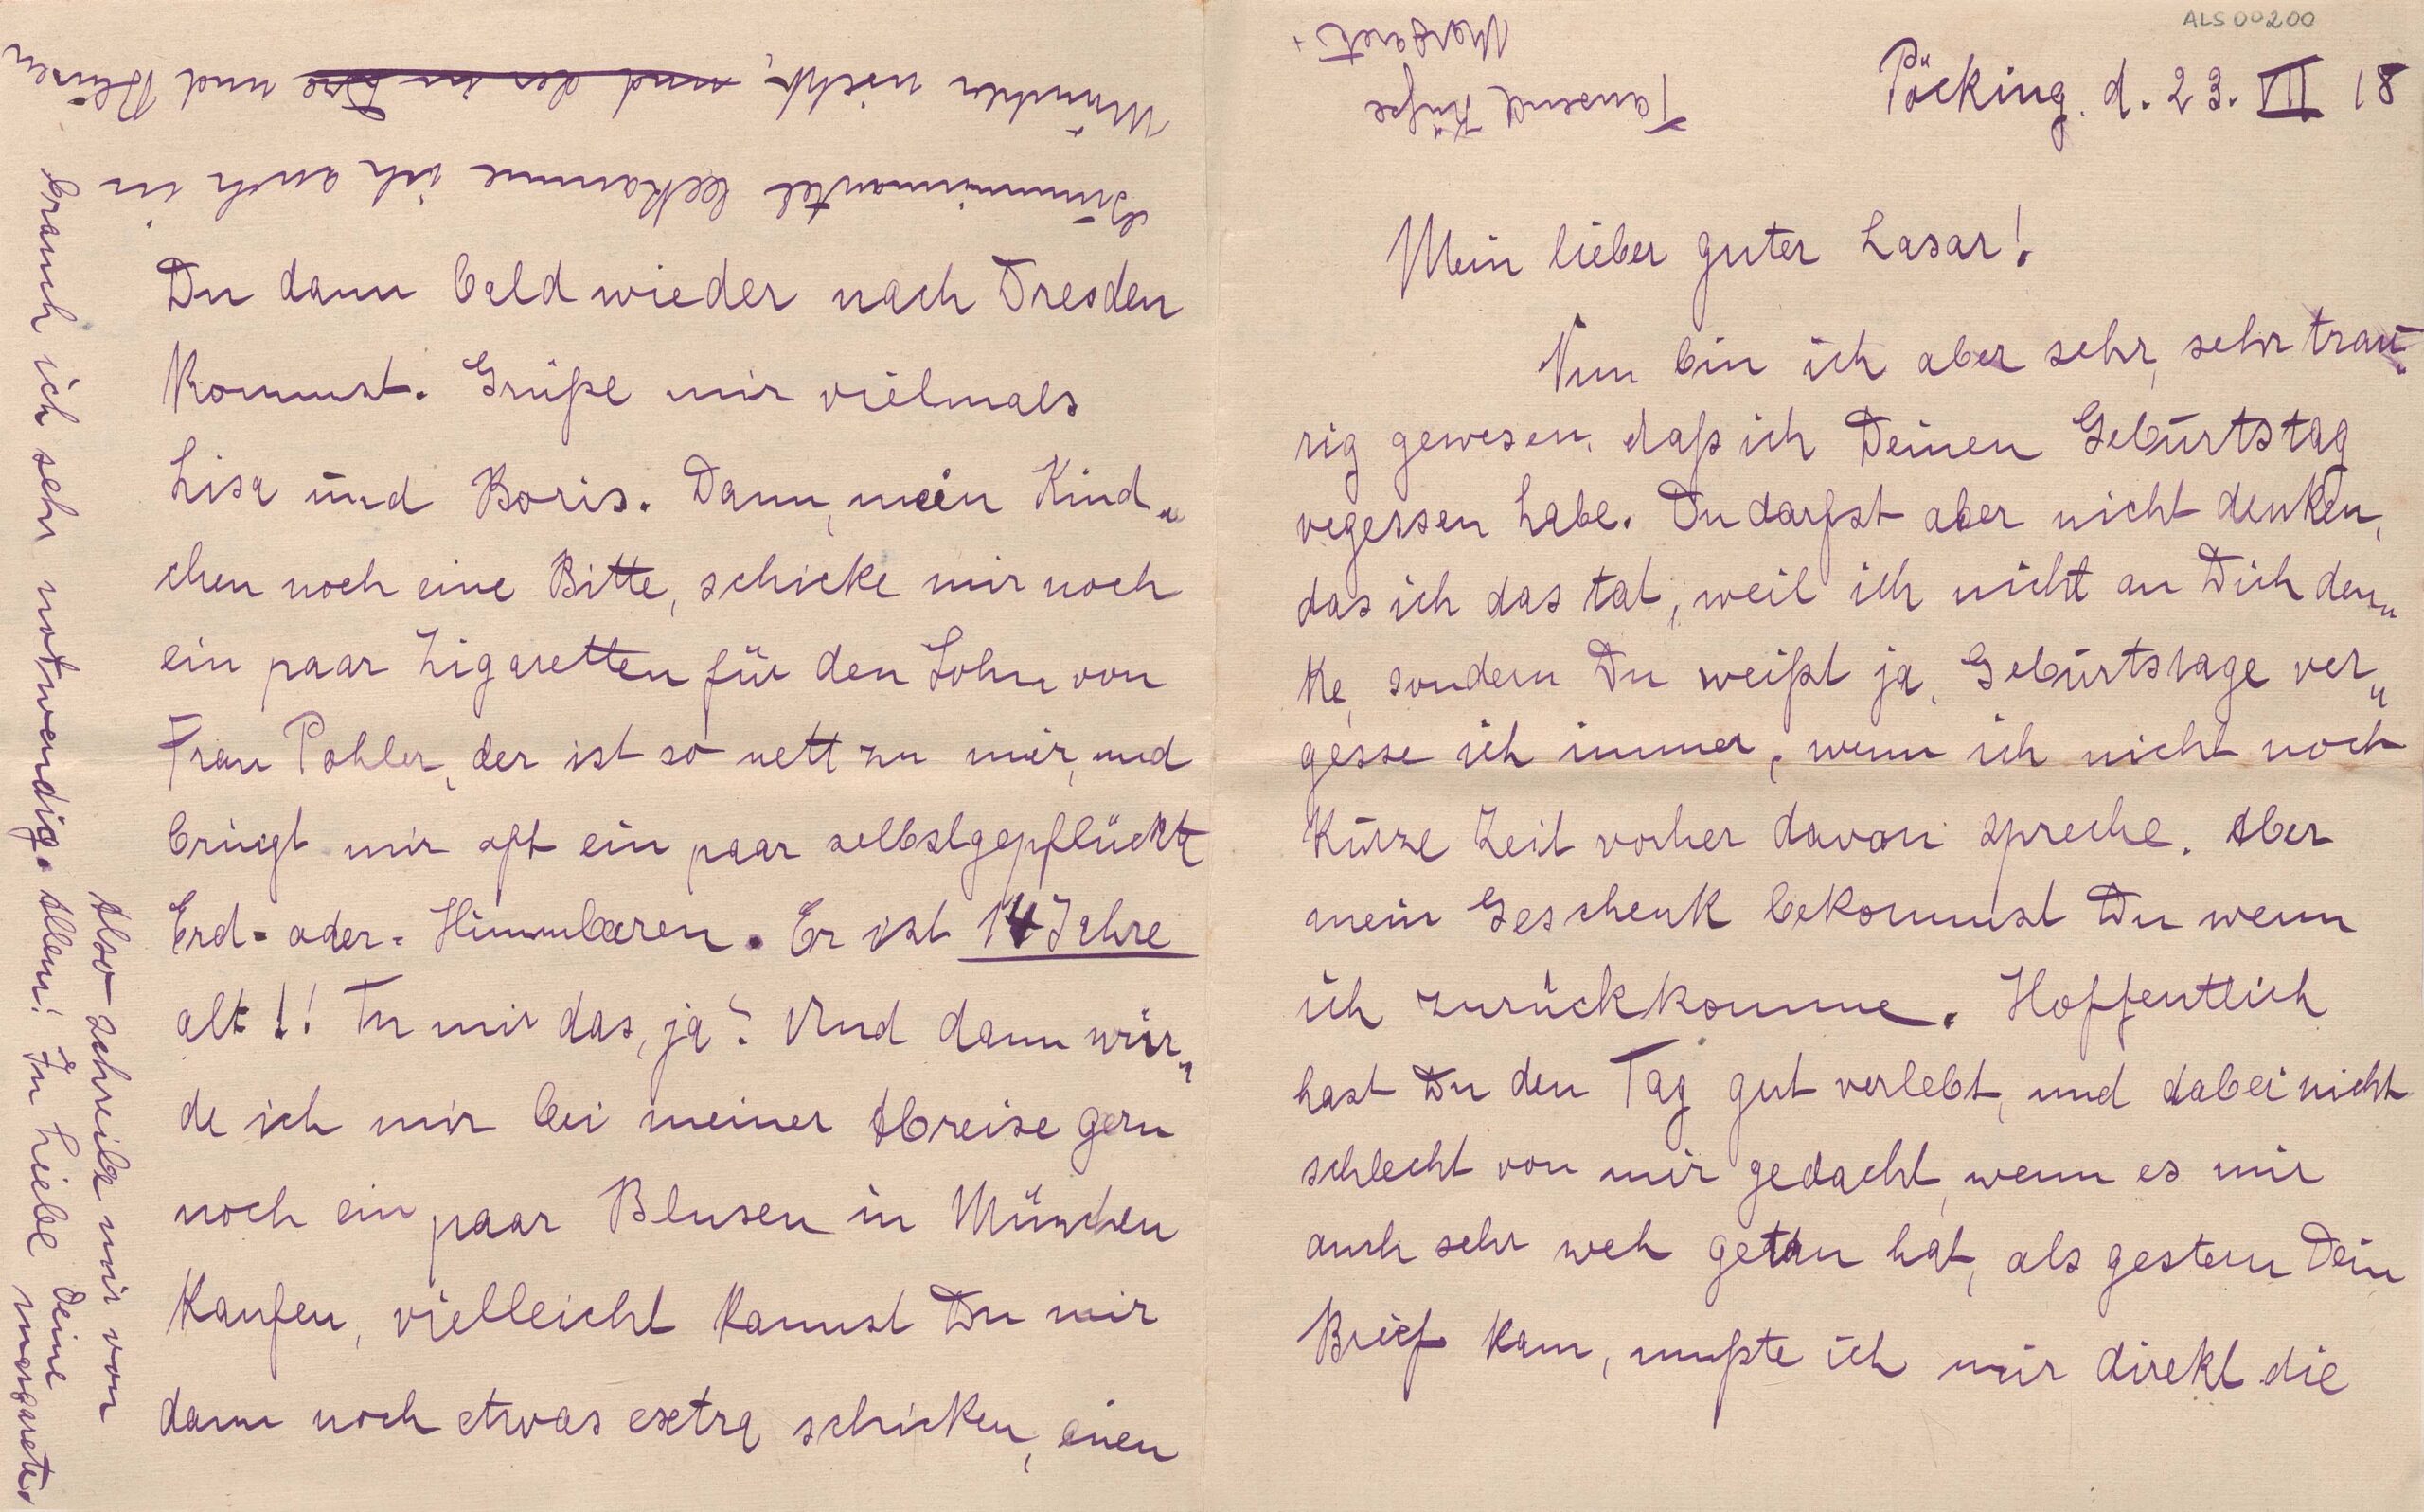 ALS00200
Pöcking. d. 23. VII 18
Mein lieber guter Lasar!
Nun bin ich aber sehr, sehr trau„
rig gewesen, daß ich Deinen Geburtstag
vegessen habe. Du darfst aber nicht denken,
das ich das tat, weil ich nicht an Dich den„
ke, sondern Du weißt ja, Geburtstage ver„
gesse ich immer, wenn ich nicht noch
kurze Zeit vorher davon spreche. Aber
mein Geschenk bekommst Du wenn
ich zurückkomme. Hoffentlich
hast Du den Tag gut verlebt, und dabei nicht
schlecht von mir gedacht, wenn es mir
auch sehr weh getan hat, als gestern Dein
Brief kam, mußte ich mir direkt die
Du dann bald wieder nach Dresden
kommst. Grüße mir vielmals
Lisa und Boris. Dann, mein Kind„
chen noch eine Bitte, schicke mir noch
ein paar Zigaretten für den Sohn von
Frau Pohler, der ist so nett zu mir, und
bringt mir oft ein paar selbstgepflückte
Erd- oder- Himmbeeren. Er ist 14 Jahre
alt!! Tu mir das, ja? Und dann wür„
de ich mir bei meiner Abreise gern
noch ein paar Blusen in München
kaufen, vielleicht kannst Du mir
dann noch etwas extra schicken, einen
Gummimantel bekomme ich auch in
München nicht, und der in und Blusen
brauch ich sehr notwendig.
Also schreibe mir von
Allem! In Liebe Deine
Margarete.
Tausend Küße
Margaret.